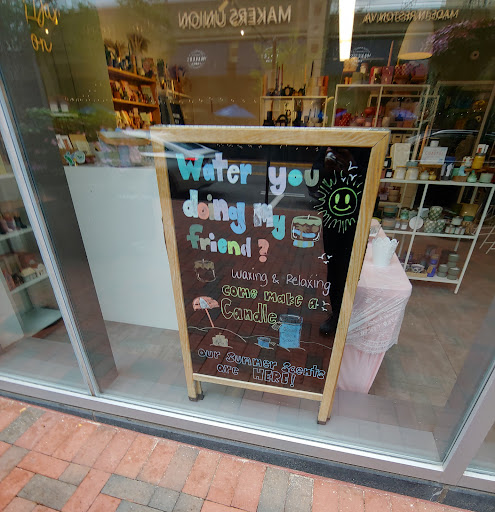 MAKERS UNION
MADE IN RESTON, VA
Water you
doing my
friend?
Waxing & Relaxing
come make a
Candle
our Summer Scents
are HERE!